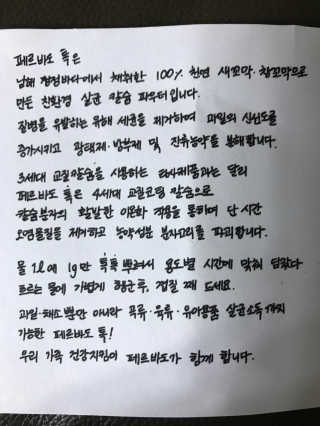 페르바도 톡은
남해 청정바다에서 채취한 100% 천연 새꼬막·참꼬막으로
만든 친환경 살균 칼슘 파우더입니다.
질병을 유발하는 유해 세균을 제거하며 과일의 신선도를
증가시키고 광택제·방부제 및 잔류농약을 분해합니다.
3세대 교질칼슘을 사용하는 타사제품과는 달리
페르바도 톡은 4세대 교질코팅 칼슘으로
칼슘분자의 활발한 이온화 작용을 통하여 단시간
오염물질을 제거하고 농약성분 분자고리를 파괴합니다.
물 1L에 1g만 톡톡 뿌려서 용도별 시간에 맞춰 담궜다
흐르는 물에 가볍게 헹군후, 껍질 째 드세요.
과일·채소뿐만 아니라 곡류·육류·유아용품 살균소독까지
가능한 페르바도 톡!
우리 가족 건강지킴이 페르바도가 함께 합니다.